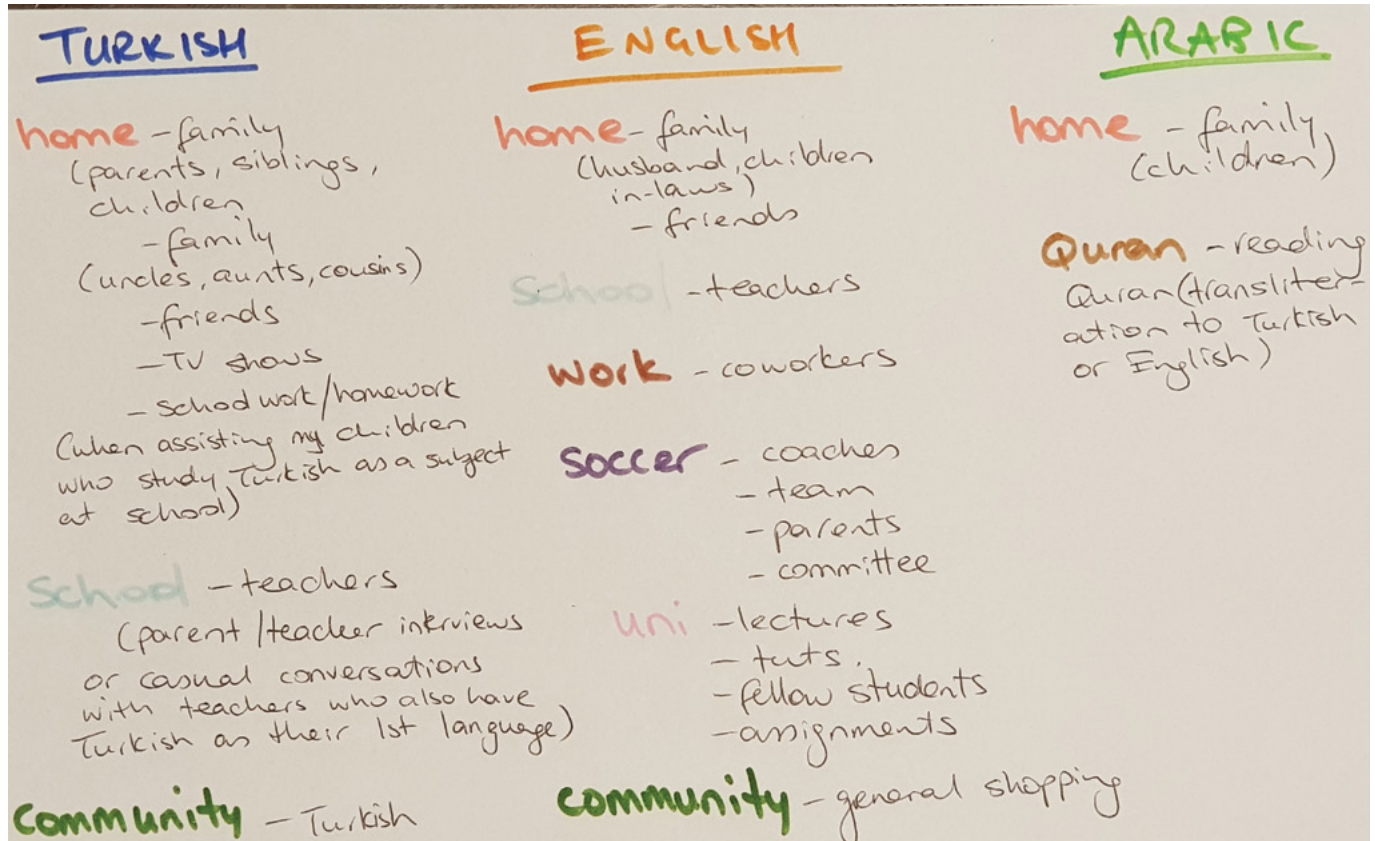 TURKISH
home - family
(parents, siblings,
children
- family
(uncles, aunts, cousins)
- friends
- TV shows
- School work/homework
(when assisting my children
who study Turkish as a subject
at school)
School - teachers
(parent/teacher interviews
or casual conversations
with teachers who also have
Turkish as their 1st language)
community - Turkish
ENGLISH
home - family
(husband, children
in-laws)
- friends
School - teachers
work - coworkers
soccer - coaches
- team
- parents
- committee
uni - lectures
- tuts.
- fellow students
- assignments
community - general shopping
ARABIC
home - family
(children)
Quran - reading
Quran (transliter-
ation to Turkish
or English)